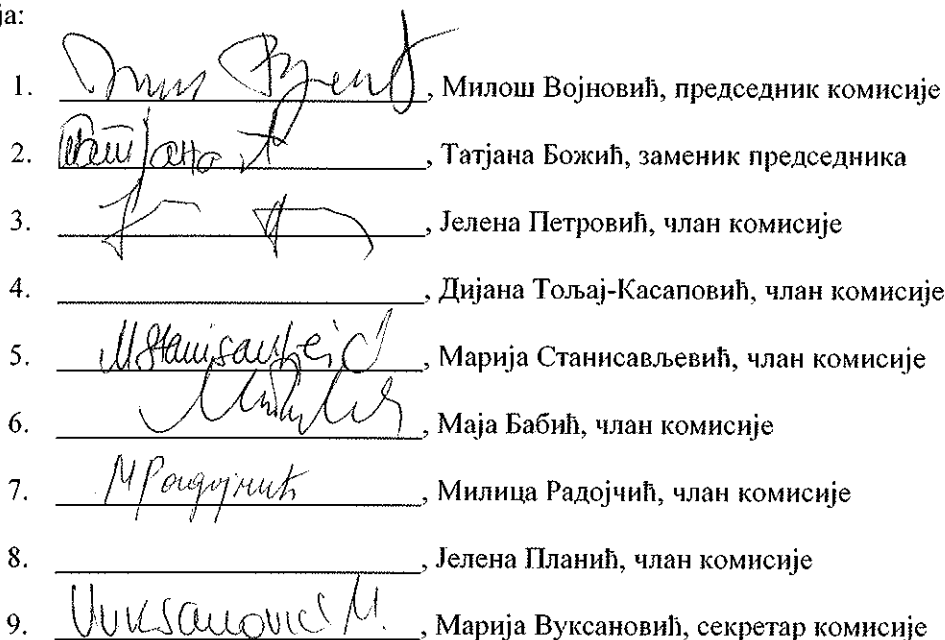 ја:
1. , Милош Војновић, председник комисије
2. Татјана , Татјана Божић, заменик председника
3. , Јелена Петровић, члан комисије
4. , Дијана Тољај-Касаповић, члан комисије
5. MStanisavljević , Марија Станисављевић, члан комисије
6. , Маја Бабић, члан комисије
7. М Радојчић , Милица Радојчић, члан комисије
8. , Јелена Планић, члан комисије
9. Vuksanović M. , Марија Вуксановић, секретар комисије